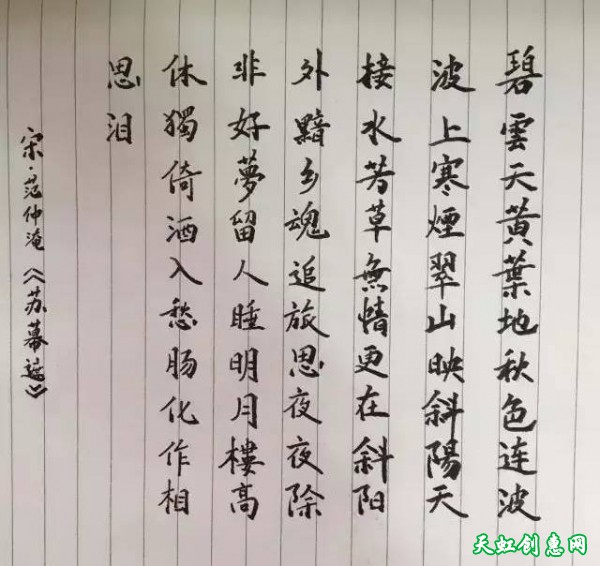 碧雲天黄葉地秋色连波
波上寒煙翠山映斜陽天
接水芳草無情更在斜阳
外黯乡魂追旅思夜夜除
非好夢留人睡明月樓高
休獨倚酒入愁肠化作相
思泪
宋·范仲淹《苏幕遮》
天虹创惠网